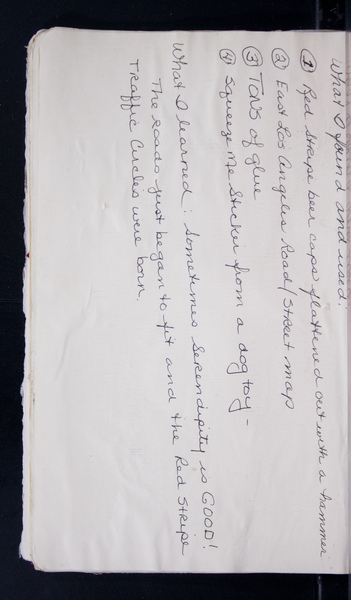 What I found and used:
① Red Stripe beer caps flattened out with a hammer
② East Los Angeles Road/Street map
③ TONS of glue
④ Squeeze Me Sticker from a dog toy -
What I learned: Sometimes Serendipity is GOOD!
The roads just began to fit and the Red Stripe
Traffic Circles were born.